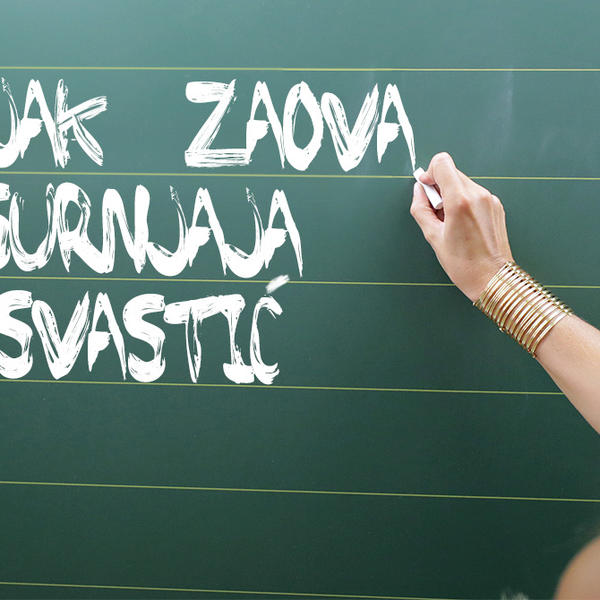 JAK ZAOVA
ŠURNJAJA
SVASTIĆ